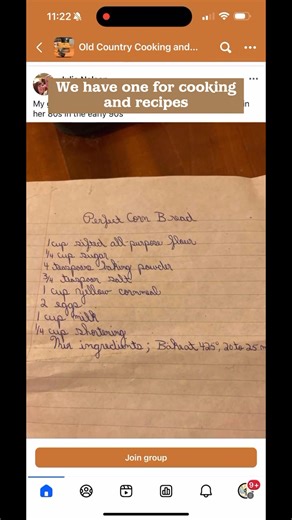 11:22
Old Country Cooking and...
We have one for cooking
and recipes
My
her 80s in the early 90s
Perfect Corn Bread
1 cup sifted all-purpose flour
1/4 cup sugar
4 teaspoons baking powder
3/4 teaspoon salt
1 cup yellow cornmeal
2 eggs
1 cup milk
1/4 cup shortening
Mix ingredients; Bake at 425°, 20 to 25 m
Join group
9+